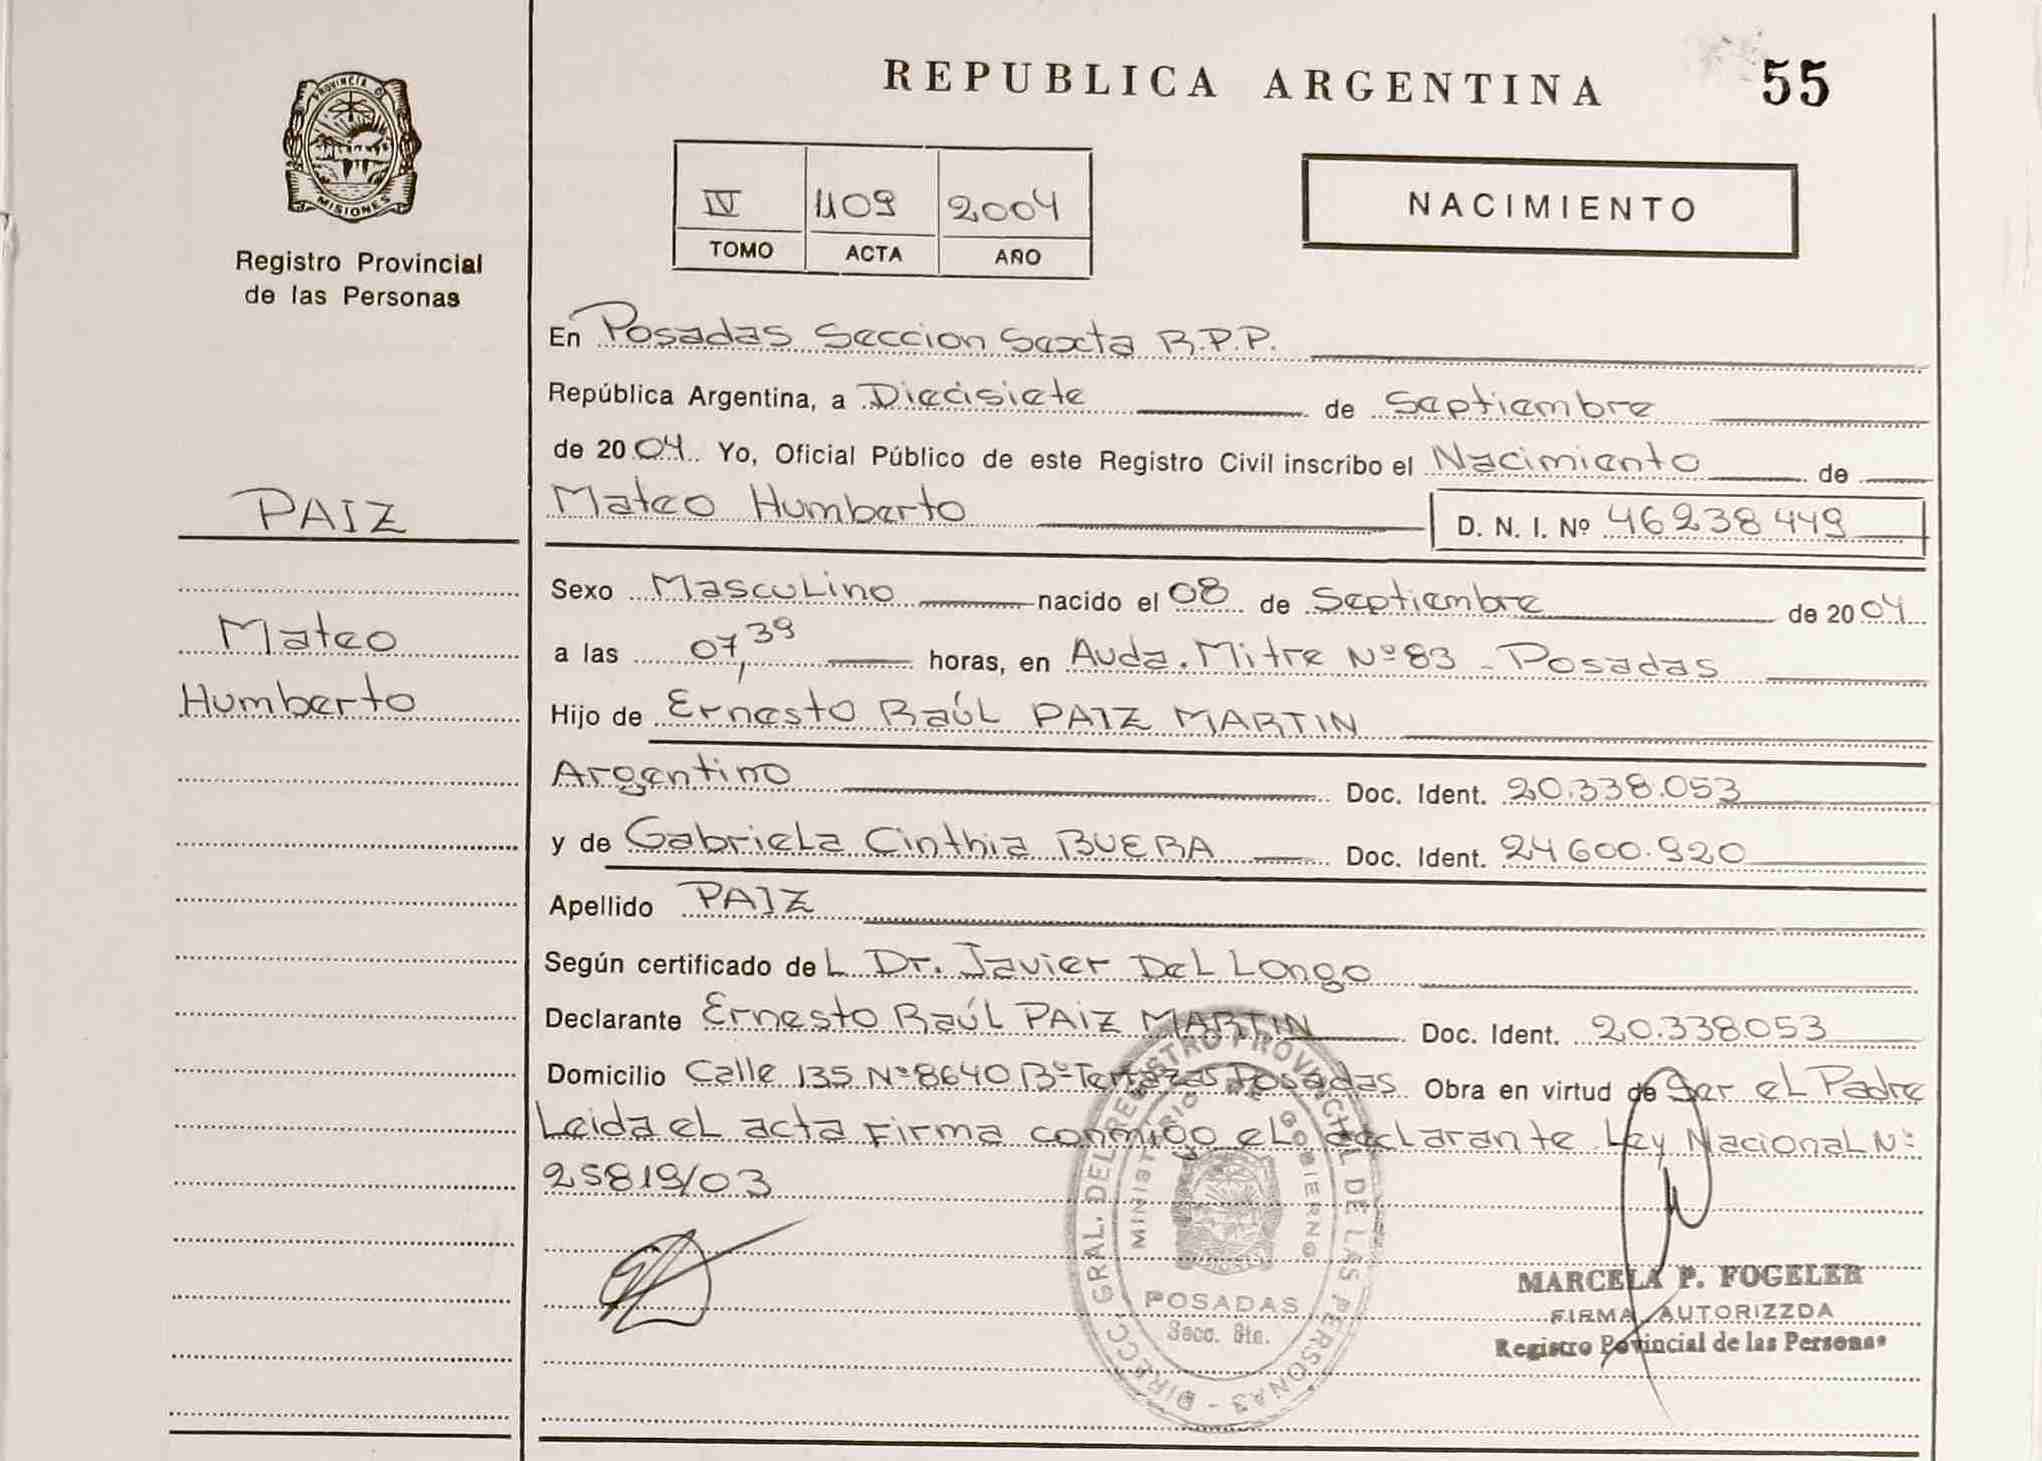 REPUBLICA ARGENTINA 55
PROVINCIA D
MISIONES
Registro Provincial
de las Personas
IV 1109 2004
TOMO ACTA AÑO
NACIMIENTO
En Posadas Seccion Sexta R.P.P.
República Argentina, a Diecisiete de Septiembre
de 2004. Yo, Oficial Público de este Registro Civil inscribo el Nacimiento de
Mateo Humberto D. N. I. Nº 46238449
PAIZ
Mateo
Humberto
Sexo Masculino nacido el 08 de Septiembre de 2004
a las 07,39 horas, en Avda. Mitre Nº 83 - Posadas
Hijo de Ernesto Raúl PAIZ MARTIN
Argentino Doc. Ident. 20.338.053
y de Gabriela Cinthia BUERA Doc. Ident. 24600.920
Apellido PAIZ
Según certificado del Dr. Javier Del Longo
Declarante Ernesto Raúl PAIZ MARTIN Doc. Ident. 20.338053
Domicilio Calle 135 Nº 8640 Bº Terrazas Posadas Obra en virtud de Ser el Padre
Leida el acta Firma conmigo el declarante Ley Nacional Nº
25819/03
DIRECC. GRAL. DEL REGISTRO PROVINCIAL DE LAS PERSONAS
MINISTERIO DE GOBIERNO
POSADAS
Secc. 6ta.
MARCELA P. FOGELER
FIRMA AUTORIZZDA
Registro Povincial de las Personas